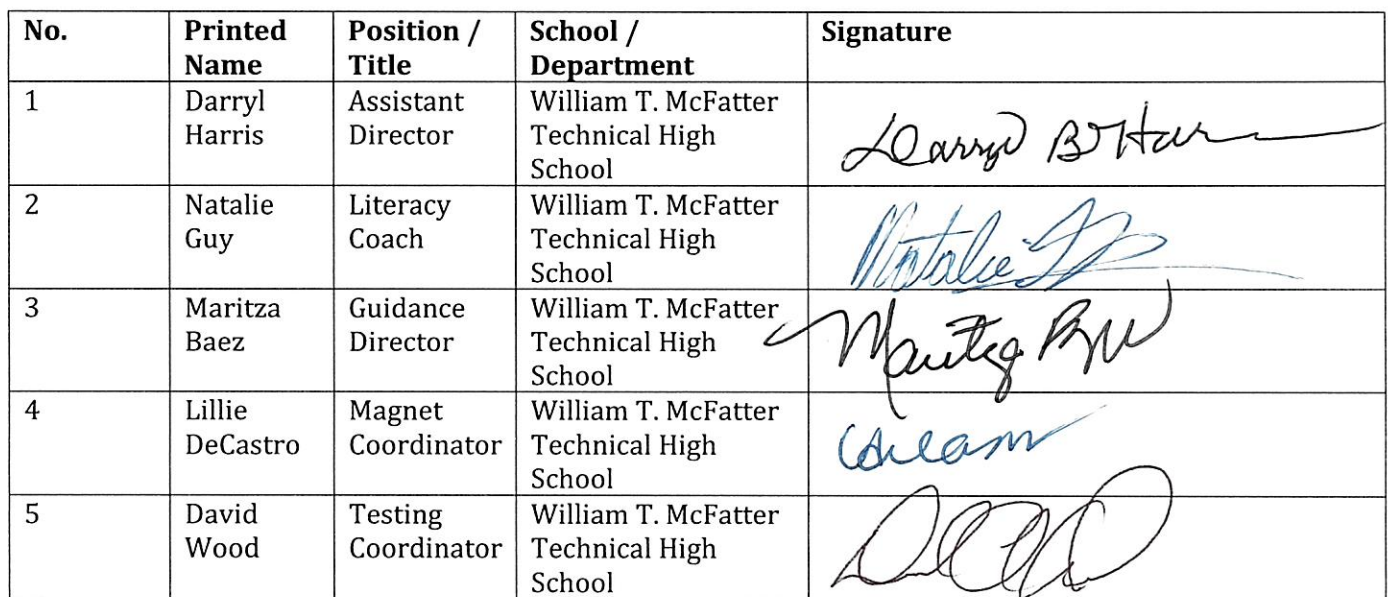 No. Printed Name Position / Title School / Department Signature
1 Darryl Harris Assistant Director William T. McFatter Technical High School Darryl B Har
2 Natalie Guy Literacy Coach William T. McFatter Technical High School Natalie
3 Maritza Baez Guidance Director William T. McFatter Technical High School Maritza
4 Lillie DeCastro Magnet Coordinator William T. McFatter Technical High School
5 David Wood Testing Coordinator William T. McFatter Technical High School